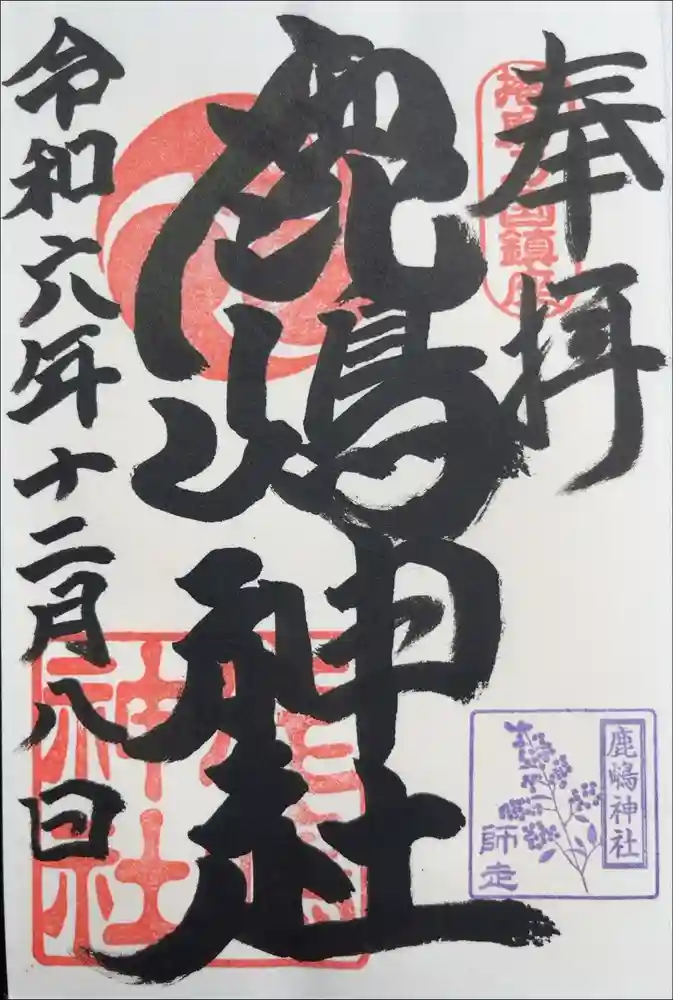 奉拝
鹿嶋神社
令和六年十二月八日
鹿嶋神社
師走